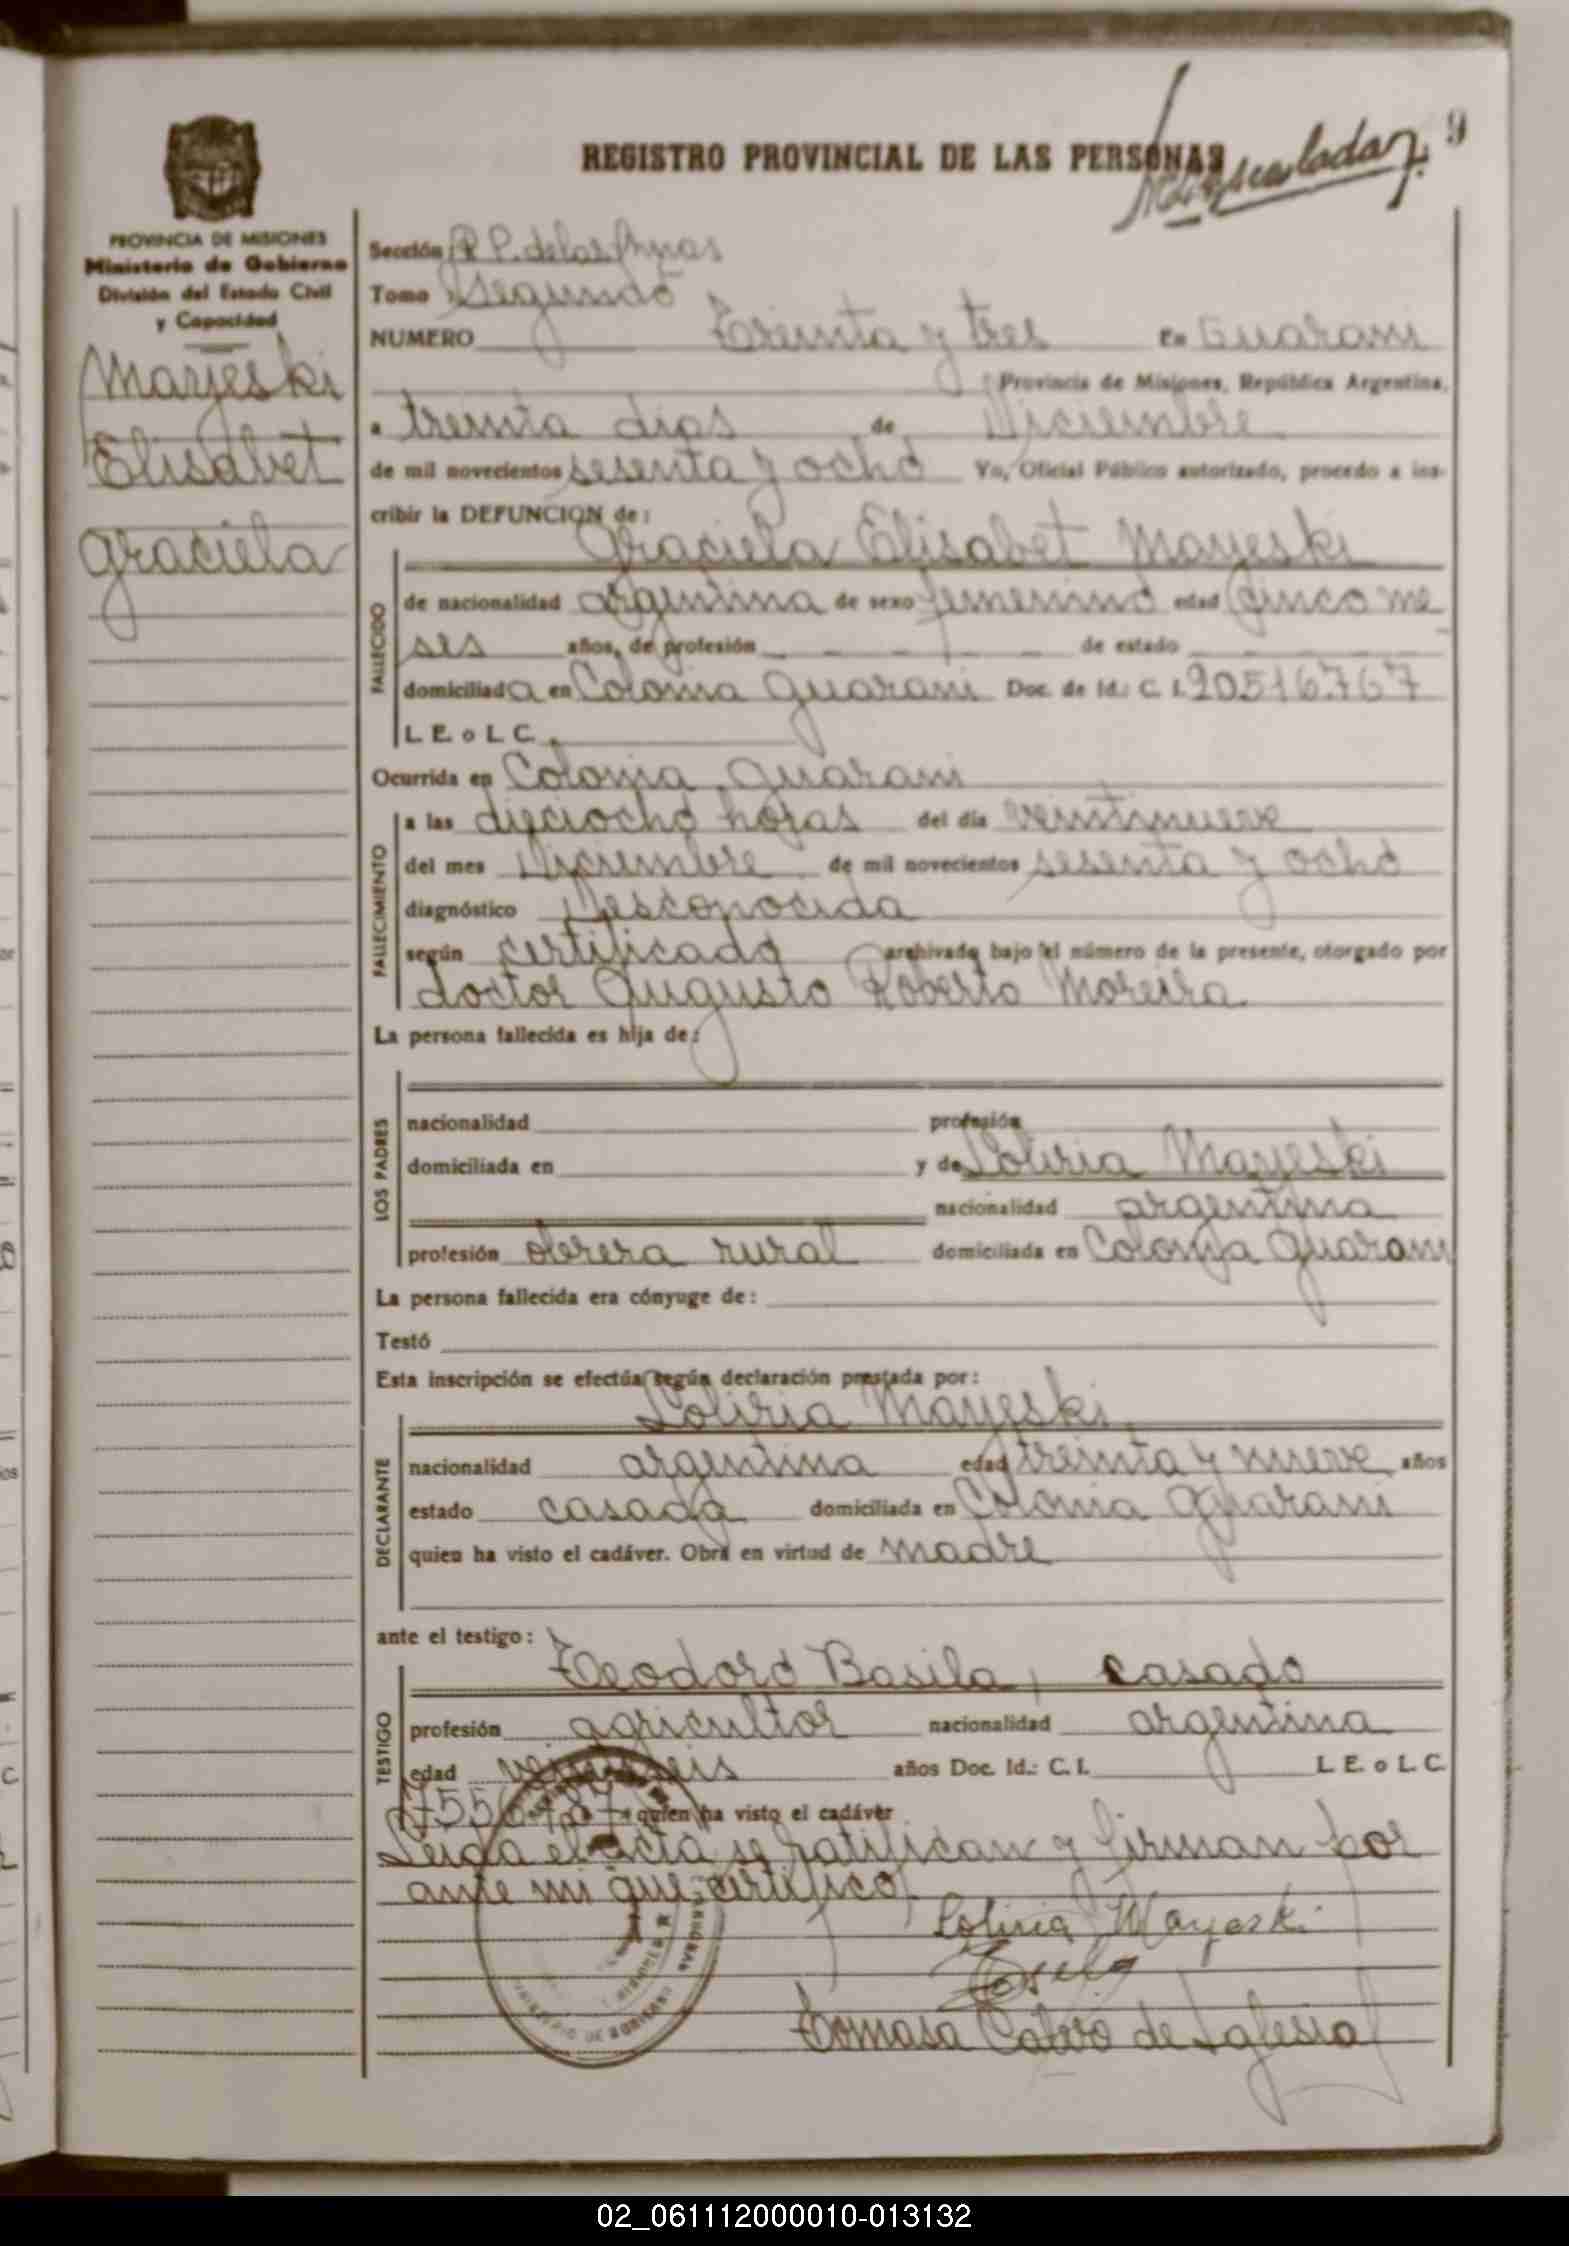 9
REGISTRO PROVINCIAL DE LAS PERSONAS
PROVINCIA DE MISIONES
Ministerio de Gobierno
División del Estado Civil
y Capacidad
Mayeski
Elisabet
Graciela
Sección R P. de las Personas
Tomo Segundo
NUMERO Treinta y tres En Guarani
Provincia de Misiones, República Argentina,
a treinta dias de Diciembre
de mil novecientos sesenta y ocho Yo, Oficial Público autorizado, procedo a ins-
cribir la DEFUNCION de:
Graciela Elisabet Mayeski
FALLECIDO
de nacionalidad argentina de sexo femenino edad cinco me
ses años, de profesión _ _ _ _ _ de estado _ _ _ _
domiciliada en Colonia Guarani Doc. de Id.: C. I. 20.516.767
L. E. o L. C.
Ocurrida en Colonia Guarani
FALLECIMIENTO
a las dieciocho horas del día veintinueve
del mes Diciembre de mil novecientos sesenta y ocho
diagnóstico Desconocida
según certificado archivado bajo el número de la presente, otorgado por
doctor Augusto Roberto Moreira
La persona fallecida es hija de:
LOS PADRES
nacionalidad profesión
domiciliada en y de Loliria Mayeski
nacionalidad argentina
profesión obrera rural domiciliada en Colonia Guarani
La persona fallecida era cónyuge de:
Testó
Esta inscripción se efectúa según declaración prestada por:
Loliria Mayeski
DECLARANTE
nacionalidad argentina edad treinta y nueve años
estado casada domiciliada en Colonia Guarani
quien ha visto el cadáver. Obra en virtud de madre
ante el testigo:
Teodoro Basila, casado
TESTIGO
profesión agricultor nacionalidad argentina
edad veintiseis años Doc. Id.: C. I. L. E. o L. C.
quien ha visto el cadáver
Leida el acta se ratifican y firman por
ante mi que certifico
Loliria Mayeski
Tomasa Calvo de Iglesia
02_061112000010-013132